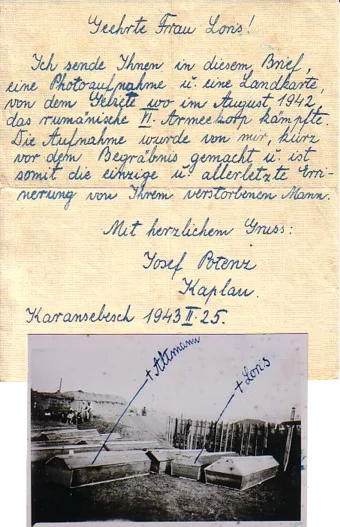 Geehrte Frau Lons!
Ich sende Ihnen in diesem Brief,
eine Photoaufnahme u. eine Landkarte,
von dem Gebiete wo im August 1942,
das rumänische VI. Armeekorp kämpfte.
Die Aufnahme wurde von mir, kurz
vor dem Begräbnis gemacht u. ist
somit die einzige u. allerletzte Erri-
nerung von Ihrem verstorbenen Mann.
Mit herzlichem Gruss:
Josef Potenz
Kaplan.
Karansebesch 1943 II. 25.
+ Altmann
+ Lons